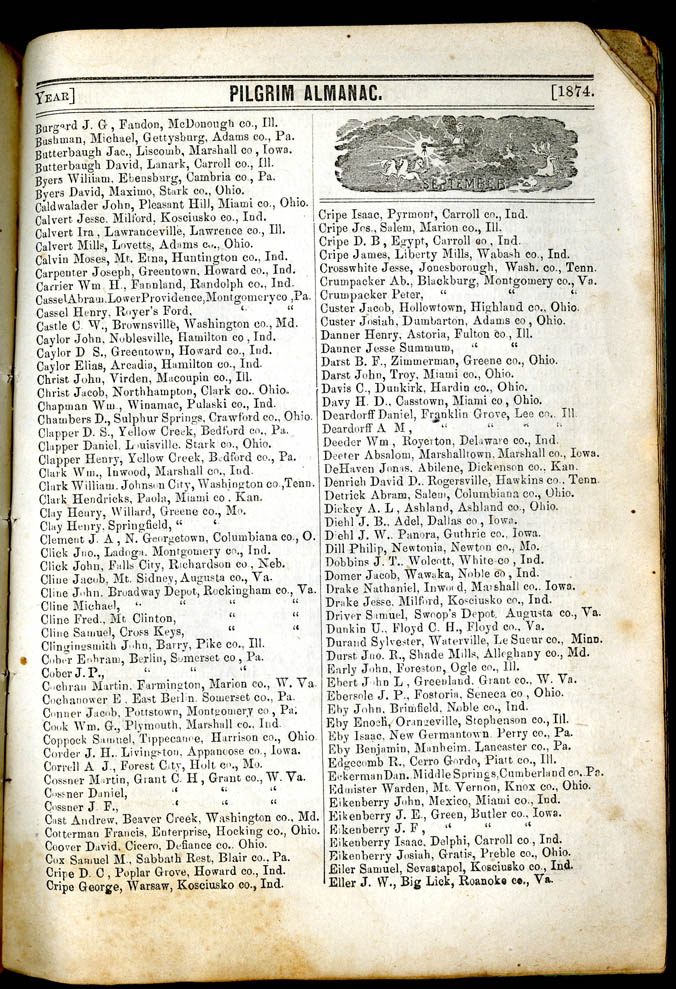 YEAR] PILGRIM ALMANAC. [1874.
Burgard J. G , Fandon, McDonough co., Ill.
Bushman, Michael, Gettysburg, Adams co., Pa.
Butterbaugh Jac., Liscomb, Marshall co , Iowa.
Butterbaugh David, Lanark, Carroll co., Ill.
Byers William, Ebensburg, Cambria co., Pa.
Byers David, Maximo, Stark co., Ohio.
Caldwalader John, Pleasant Hill, Miami co., Ohio.
Calvert Jesse. Milford, Kosciusko co., Ind.
Calvert Ira , Lawranceville, Lawrence co., Ill.
Calvert Mills, Lovetts, Adams co., Ohio.
Calvin Moses, Mt. Etna, Huntington co., Ind.
Carpenter Joseph, Greentown, Howard co., Ind.
Carrier Wm. H., Fannland, Randolph co., Ind.
Cassel Abram. Lower Providence, Montgomery co , Pa.
Cassel Henry, Royer's Ford, " "
Castle C. W., Brownsville, Washington co., Md.
Caylor John, Noblesville, Hamilton co , Ind.
Caylor D S., Greentown, Howard co., Ind.
Caylor Elias, Arcadia, Hamilton co., Ind.
Christ John, Virden, Macoupin co., Ill.
Christ Jacob, Northhampton, Clark co., Ohio.
Chapman Wm., Winamac, Pulaski co., Ind.
Chambers D., Sulphur Springs, Crawford co., Ohio.
Clapper D. S., Yellow Creek, Bedford co., Pa.
Clapper Daniel, Louisville, Stark co., Ohio.
Clapper Henry, Yellow Creek, Bedford co., Pa.
Clark Wm., Inwood, Marshall co., Ind.
Clark William, Johnson City, Washington co., Tenn.
Clark Hendricks, Paola, Miami co , Kan.
Clay Henry, Willard, Greene co., Mo.
Clay Henry, Springfield, " "
Clement J. A , N. Georgetown, Columbiana co., O.
Click Jno., Ladoga, Montgomery co., Ind.
Click John, Falls City, Richardson co , Neb.
Cline Jacob, Mt. Sidney, Augusta co., Va.
Cline John, Broadway Depot, Rockingham co., Va.
Cline Michael, " " " "
Cline Fred., Mt Clinton, " "
Cline Samuel, Cross Keys, " "
Clingingsmith John, Barry, Pike co., Ill.
Cober Ephram, Berlin, Somerset co , Pa.
Cober J. P., " " "
Cochran Martin, Farmington, Marion co., W. Va.
Cochanower E , East Berlin, Somerset co., Pa.
Conner Jacob, Pottstown, Montgomery co , Pa.
Cook Wm. G., Plymouth, Marshall co., Ind.
Coppock Samuel, Tippecanoe, Harrison co., Ohio
Corder J. H., Livingston, Appanoose co., Iowa.
Correll A J., Forest City, Holt co., Mo.
Cossner Martin, Grant C. H , Grant co., W. Va.
Cossner Daniel, " " "
Cossner J. F., " " "
Cost Andrew, Beaver Creek, Washington co., Md.
Cotterman Francis, Enterprise, Hocking co., Ohio.
Coover David, Cicero, Defiance co., Ohio.
Cox Samuel M., Sabbath Rest, Blair co., Pa.
Cripe D. C , Poplar Grove, Howard co., Ind.
Cripe George, Warsaw, Kosciusko co., Ind.
SEPTEMBER
Cripe Isaac, Pyrmont, Carroll co., Ind.
Cripe Jos., Salem, Marion co., Ill.
Cripe D. B , Egypt, Carroll co , Ind.
Cripe James, Liberty Mills, Wabash co., Ind.
Crosswhite Jesse, Jonesborough, Wash. co., Tenn.
Crumpacker Ab., Blackburg, Montgomery co., Va.
Crumpacker Peter, " " "
Custer Jacob, Hollowtown, Highland co., Ohio.
Custer Josiah, Dumbarton, Adams co , Ohio.
Danner Henry, Astoria, Fulton co , Ill.
Danner Jesse Summum, " "
Darst B. F., Zimmerman, Greene co., Ohio.
Darst John, Troy, Miami co., Ohio.
Davis C., Dunkirk, Hardin co., Ohio.
Davy H. D., Casstown, Miami co , Ohio.
Deardorff Daniel, Franklin Grove, Lee co., Ill
Deardorff A M , " " " "
Deeder Wm , Royerton, Delaware co., Ind.
Deeter Absalom, Marshalltown, Marshall co., Iowa.
DeHaven Jonas, Abilene, Dickenson co., Kan.
Denrich David D., Rogersville, Hawkins co., Tenn.
Detrick Abram, Salem, Columbiana co., Ohio.
Dickey A. L , Ashland, Ashland co., Ohio.
Diehl J. B., Adel, Dallas co , Iowa.
Diehl J. W., Panora, Guthrie co., Iowa.
Dill Philip, Newtonia, Newton co., Mo.
Dobbins J. T., Wolcott, White co , Ind.
Domer Jacob, Wawaka, Noble co , Ind.
Drake Nathaniel, Inwood, Marshall co., Iowa.
Drake Jesse, Milford, Kosciusko co., Ind.
Driver Samuel, Swoop's Depot, Augusta co., Va.
Dunkin U., Floyd C. H., Floyd co., Va.
Durand Sylvester, Waterville, Le Sueur co., Minn.
Durst Jno. R., Shade Mills, Alleghany co., Md.
Early John, Foreston, Ogle co., Ill.
Ebert John L , Greenland, Grant co., W. Va.
Ebersole J. P., Fostoria, Seneca co , Ohio.
Eby John, Brimfield, Noble co., Ind.
Eby Enoch, Orangeville, Stephenson co., Ill.
Eby Isaac, New Germantown, Perry co., Pa.
Eby Benjamin, Manheim, Lancaster co., Pa.
Edgecomb R., Cerro Gordo, Piatt co., Ill.
Eckerman Dan. Middle Springs, Cumberland co. Pa.
Edmister Warden, Mt. Vernon, Knox co., Ohio.
Eikenberry John, Mexico, Miami co., Ind.
Eikenberry J. E., Green, Butler co., Iowa.
Eikenberry J. F , " " "
Eikenberry Isaac, Delphi, Carroll co , Ind.
Eikenberry Josiah, Gratis, Preble co., Ohio.
Eiler Samuel, Sevastapol, Kosciusko co., Ind.
Eller J. W., Big Lick, Roanoke co., Va.